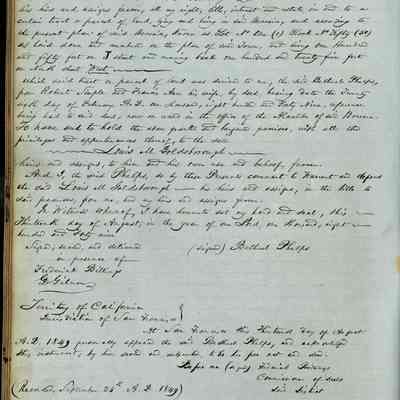 his heirs and assigns forever, all my right, title, interest and estate in and to a
certain tract or parcel of land, lying and being in said Mission, and according to
the present plan of said Mission, known as Lot No One (1) Block No Fifty (50)
as laid down and marked on the plan of said Town, and being One hundred
and fifty feet on Street and running back one hundred and twenty five feet
with that West
which said tract or parcel of land was deeded to me, the said Bethuel Phelps,
from Robert Semple and Frances Ann his wife, by deed, bearing date the Twenty
sixth day of February A.D. One thousand, eight hundred and Forty Nine, reference
being had to said deed, now on record in the office of the Alcalde of said Benicia
To have and to hold the above granted and bargained premises, with all the
privileges and appurtenances thereof, to the said
Louis M. Goldsborough
heirs and assigns, to him and his own use and behoof forever.
And I, the said Phelps, do by these Presents covenant to Warrant and defend
the said Louis M. Goldsborough his heirs and assigns, in the title to
said premises, for me, and my heirs and assigns forever.
In Witness whereof, I have hereunto set my hand and seal, this
Thirteenth day of August, in the year of our Lord, one thousand, eight
hundred and Forty nine.
Signed, sealed and delivered (signed) Bethuel Phelps
in presence of
Frederick Billings
Territory of California
Jurisdiction of San Francisco
At San Francisco this Thirteenth day of August
A.D. 1849 personally appeared the said Bethuel Phelps, and acknowledged
this instrument, by him sealed and subscribed, to be his free act and deed.
Before me (signed) Frederick Billings
Commissioner of deeds
said District
(Recorded September 24th A.D. 1849)